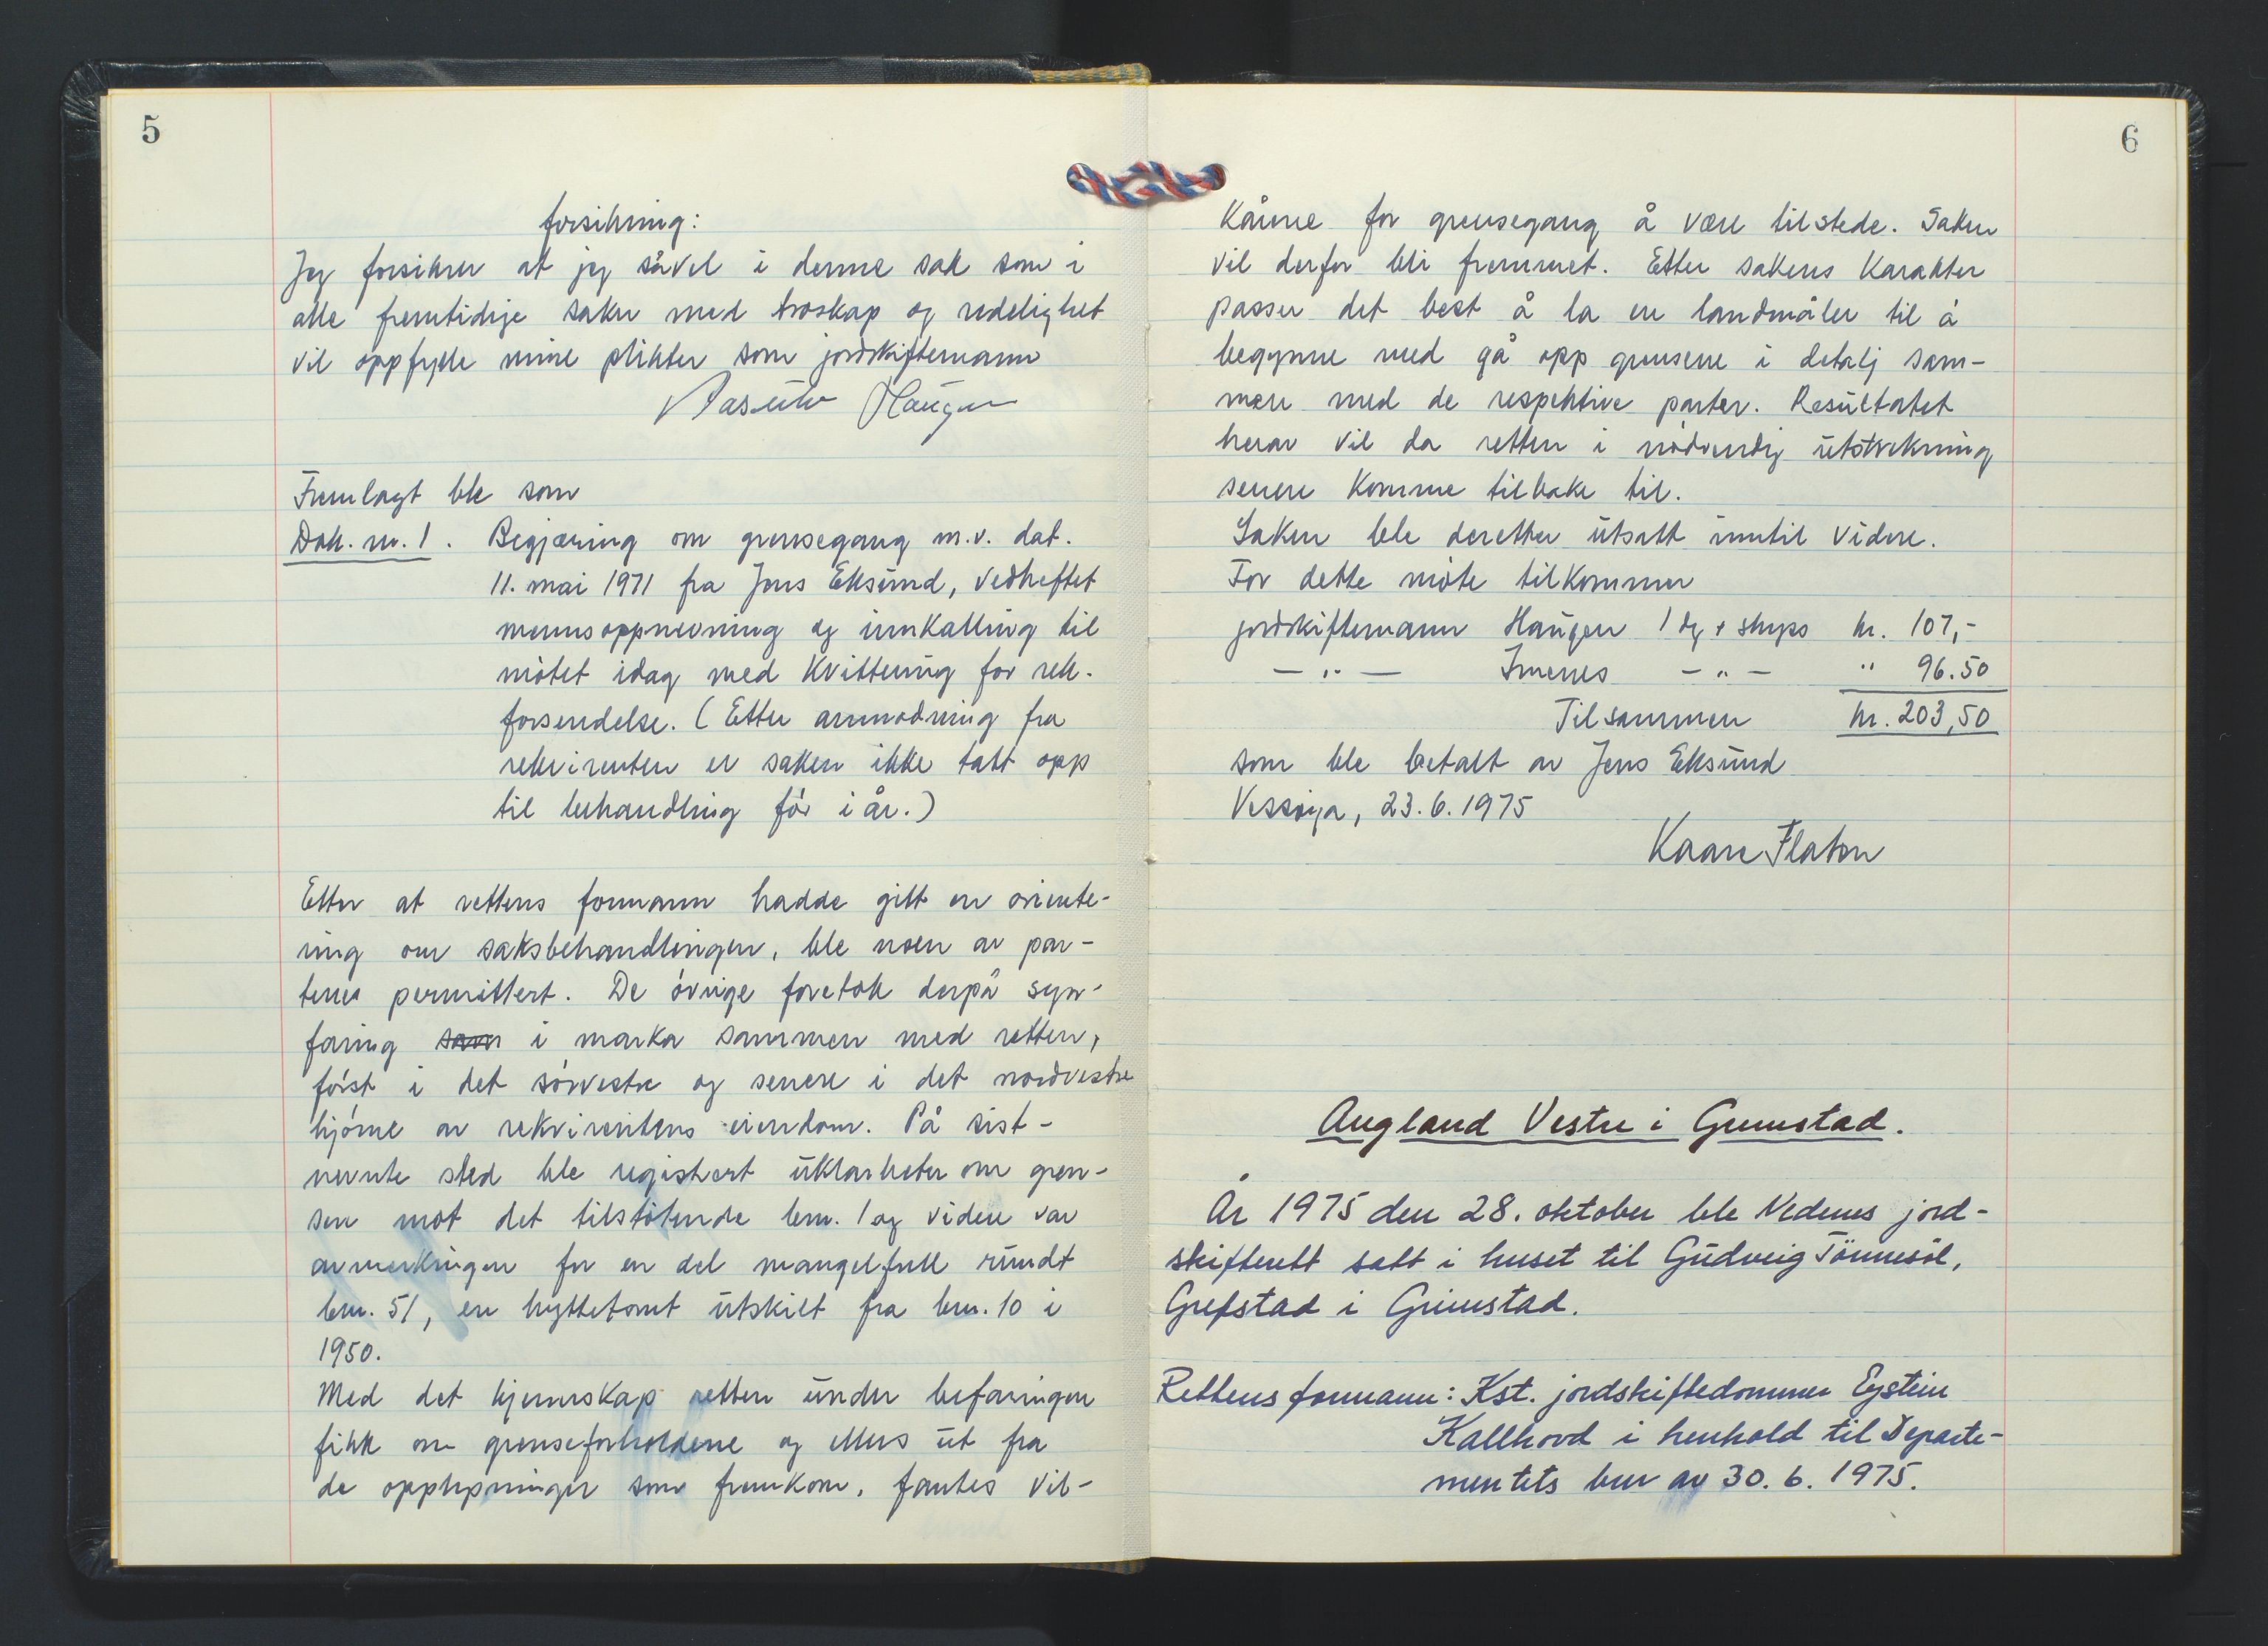 5
forsikring:
Jeg forsikrer at jeg såvel i denne sak som i
alle fremtidige saker med troskap og redelighet
vil oppfylle mine plikter som jordskiftemann
Haugen
Fremlagt ble som
Dok. nr. 1. Begjæring om grensegang m.v. dat.
11. mai 1971 fra Jens Eksund, vedheftet
mennsoppnevning og innkalling til
møtet idag med kvittering for rek.
forsendelse. (Etter anmodning fra
rekvirenten er saken ikke tatt opp
til behandling før i år.)
Etter at rettens formann hadde gitt en oriente-
ring om saksbehandlingen, ble noen av par-
tene permittert. De øvrige foretok derpå syn-
faring sam i marka sammen med retten,
først i det sørvestre og senere i det nordvestre
hjørne av rekvirentens eiendom. På sist-
nevnte sted ble registrert uklarheter om gren-
sen mot det tilstøtende bnr. 1 og videre var
avmerkingen for en del mangelfull rundt
bnr. 51, en hyttetomt utskilt fra bnr. 10 i
1950.
Med det kjennskap retten under befaringen
fikk om grenseforholdene og ellers ut fra
de opplysninger som fremkom, fantes vil-
6
kårene for grensegang å være tilstede. Saken
vil derfor bli fremmet. Etter sakens karakter
passer det best å la en landmåler til å
begynne med gå opp grensene i detalj sam-
men med de respektive parter. Resultatet
herav vil da retten i nødvendig utstrekning
senere komme tilbake til.
Saken ble deretter utsatt inntil videre.
For dette møte tilkommer
jordskiftemann Haugen 1 dg + skyss kr. 107,-
— " — Imenes — " — " 96.50
Tilsammen kr. 203,50
som ble betalt av Jens Eksund
Vessøya, 23.6.1975
Kaare Flaten
Augland Vestre i Grimstad.
År 1975 den 28. oktober ble Nedenes jord-
skifterett satt i huset til Gudveig Tönnesöl,
Grefstad i Grimstad.
Rettens formann: Kst. jordskiftedommer Eystein
Kallhovd i henhold til Departe-
mentets brev av 30.6.1975.